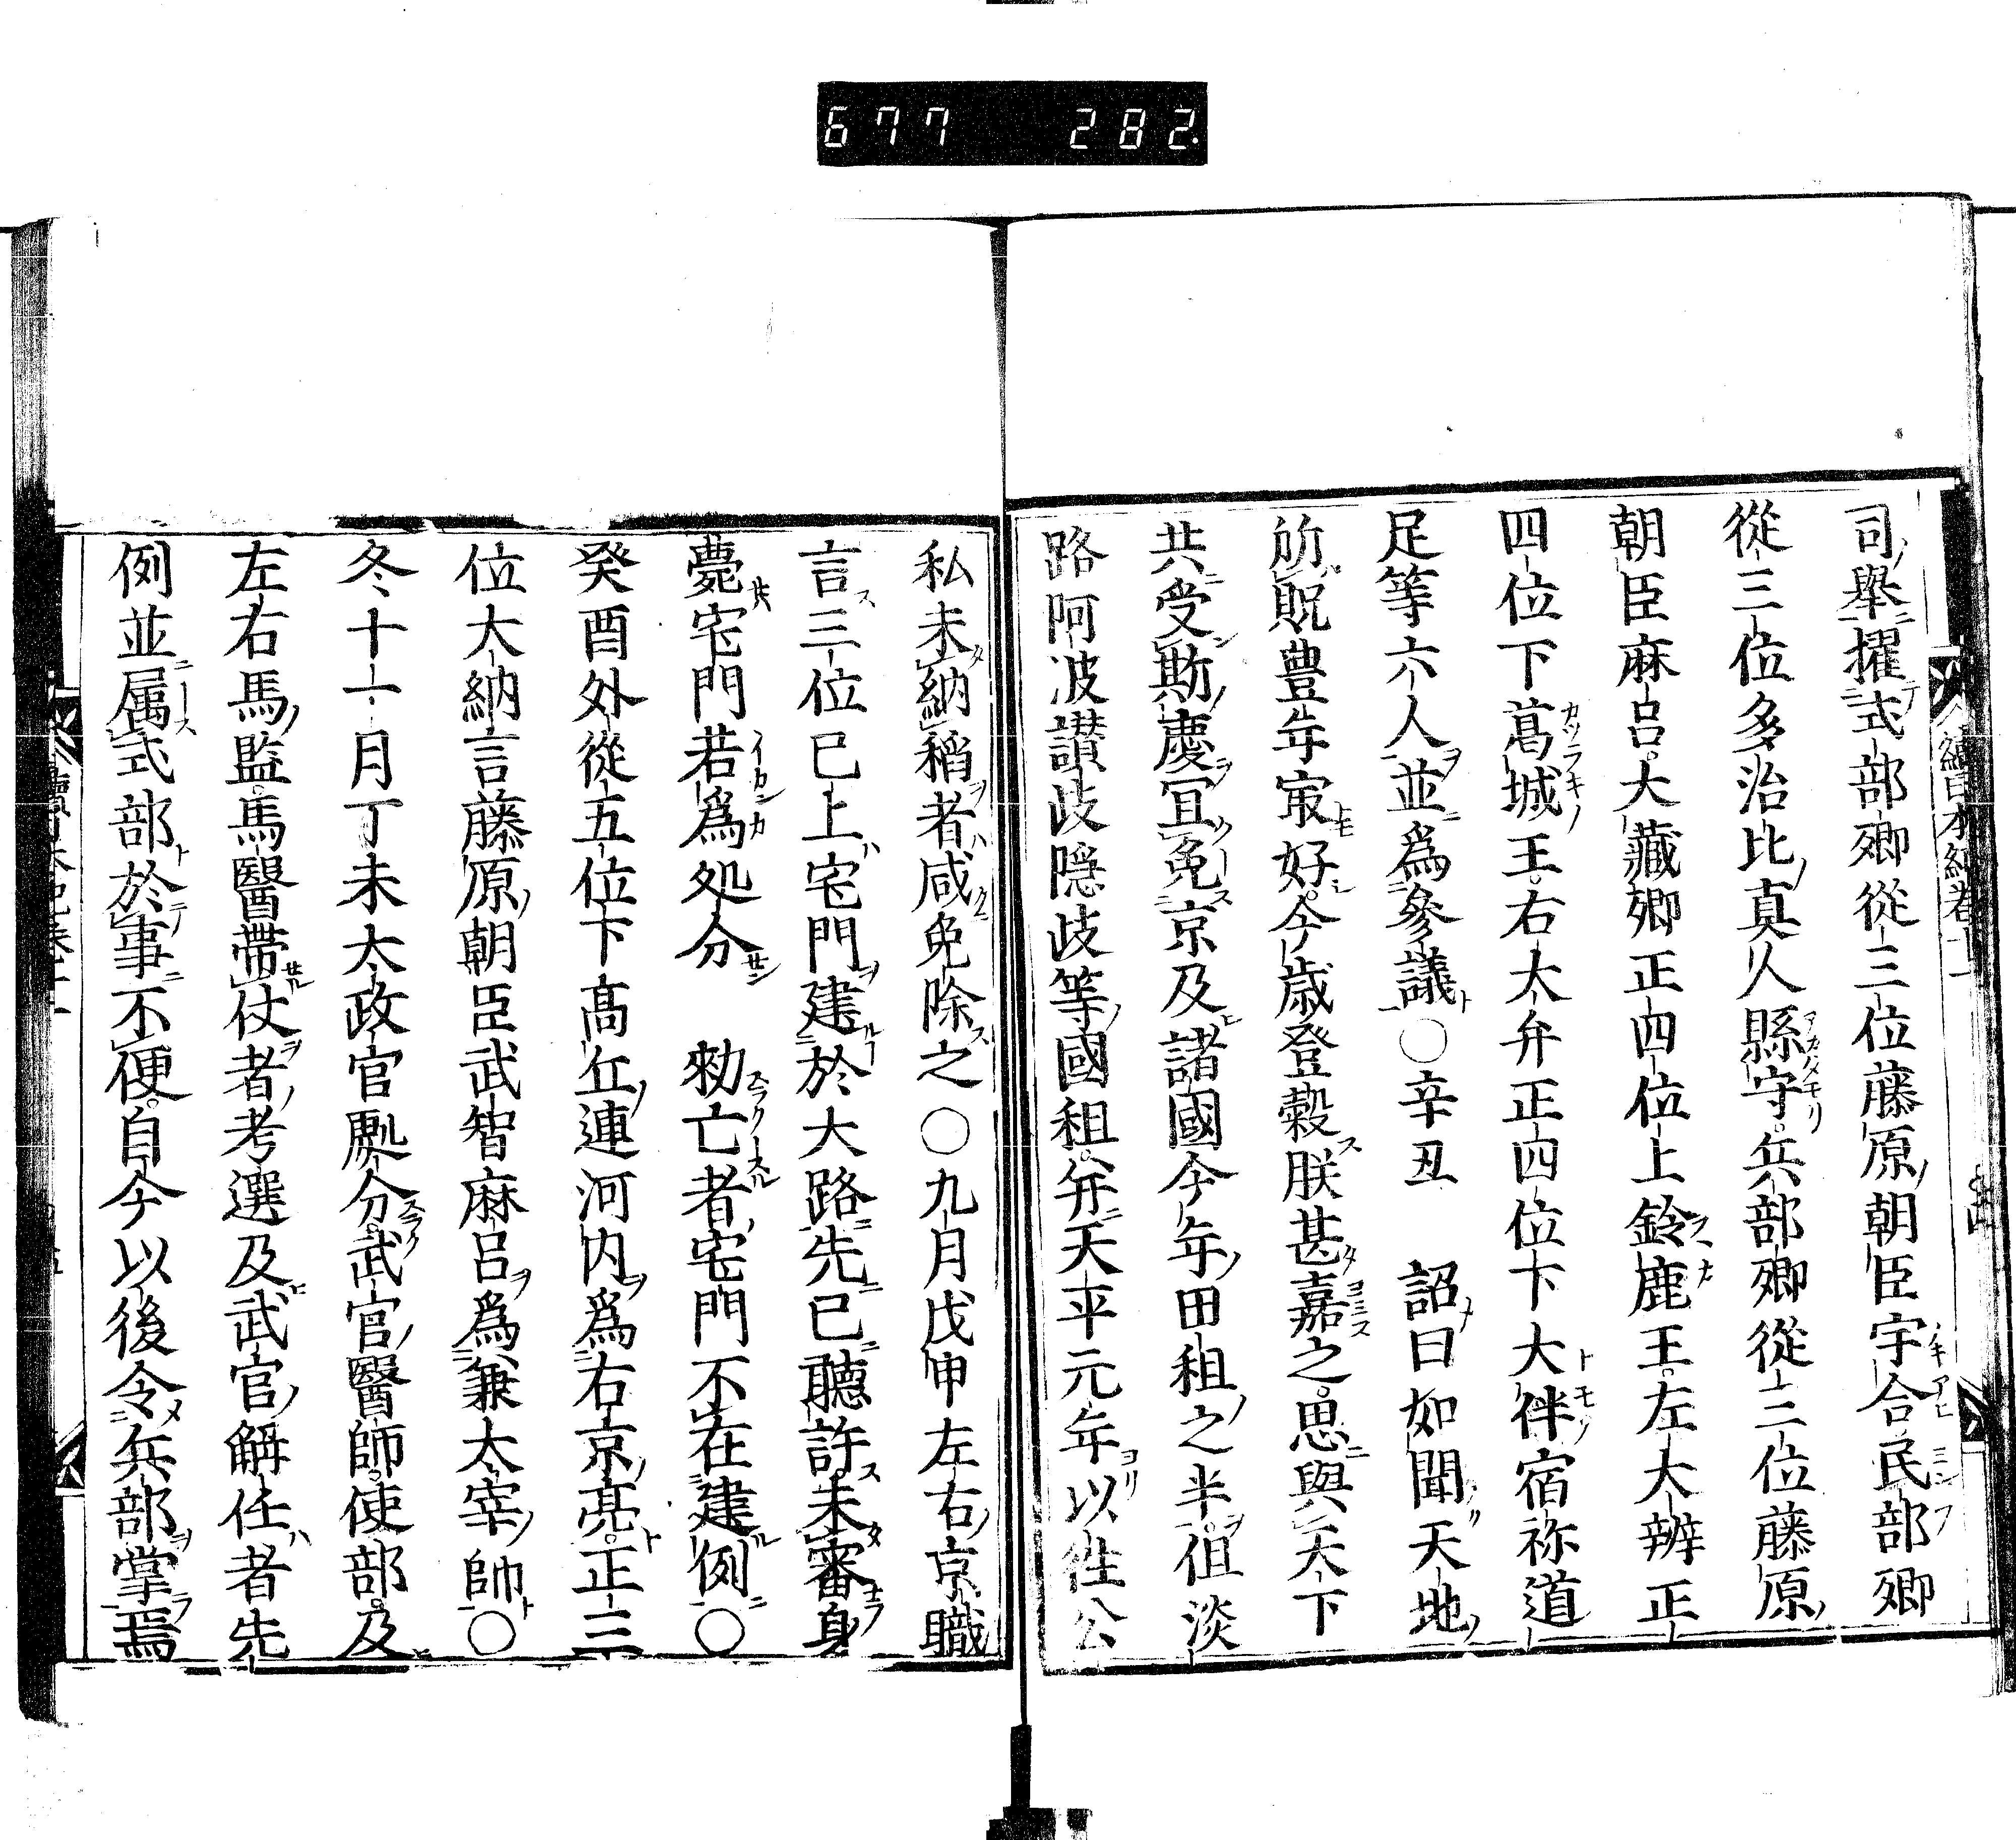 677 282
續日本紀卷十一
司舉擢式部卿從三位藤原朝臣宇合民部卿
從三位多治比真人縣守兵部卿從三位藤原
朝臣麻呂大藏卿正四位上鈴鹿王左大辨正
四位下葛城王右大弁正四位下大伴宿祢道
足等六人並爲參議〇辛丑 詔曰如聞天地
所貺豊年㝡好今歳登穀朕甚嘉之思與天下
共受斯慶冝免京及諸國今年田租之半伹淡
路阿波讃歧隠歧等國租并天平元年以徃公
私未納稲者咸免除之〇九月戊申左右京職
言三位已上宅門建於大路先已聽許未審身
薨宅門若爲処分 勑亡者宅門不在建例〇
癸酉外從五位下髙丘連河内爲右京亮正三
位大納言藤原朝臣武智麻呂爲兼太宰帥〇
冬十一月丁未太政官處分武官醫師使部及
左右馬監馬醫帶仗者考選及武官解任者先
例並属式部於事不便自今以後令兵部掌焉